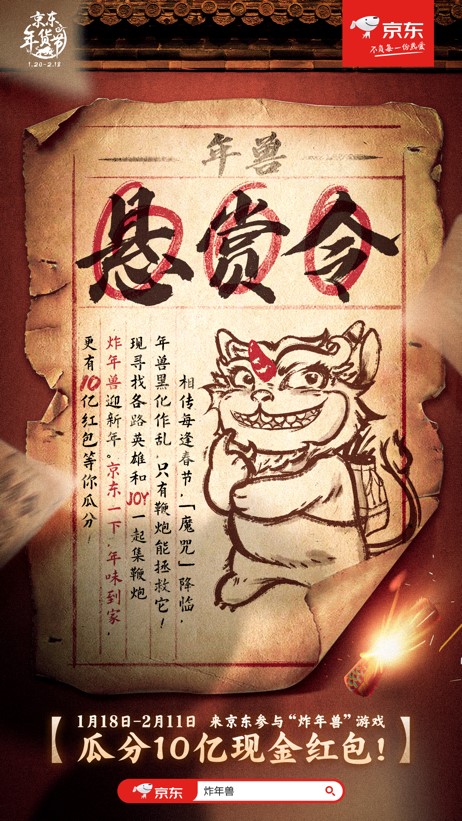 京东
年货节
1.20-2.18
京东
不负每一份热爱
年兽
悬赏令
相传每逢春节,「魔咒」降临,
年兽黑化作乱,只有鞭炮能拯救它!
现寻找各路英雄和JOY一起集鞭炮
炸年兽迎新年。京东一下,年味到家,
更有10亿红包等你瓜分!
1月18日-2月11日 来京东参与“炸年兽”游戏
瓜分10亿现金红包!
京东 炸年兽